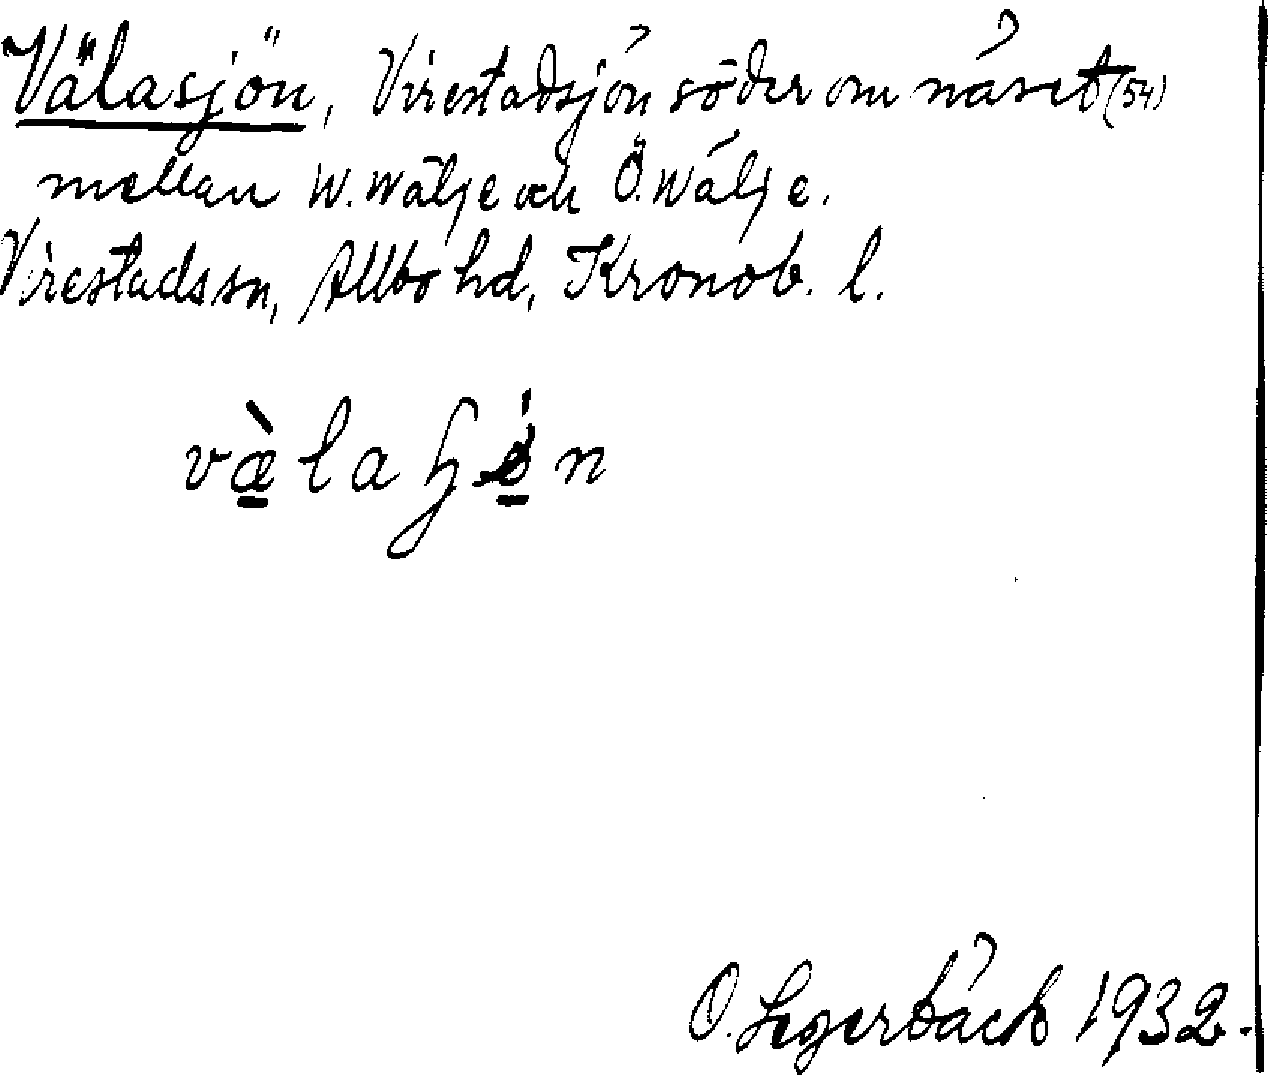 Välasjön, Virestadsjön söder om näset (54)
mellan W. Wälje och Ö. Wälje.
Virestads sn, Allbo hd, Kronob. l.
væ̀laɧǿn
O. Segerbäck 1932.